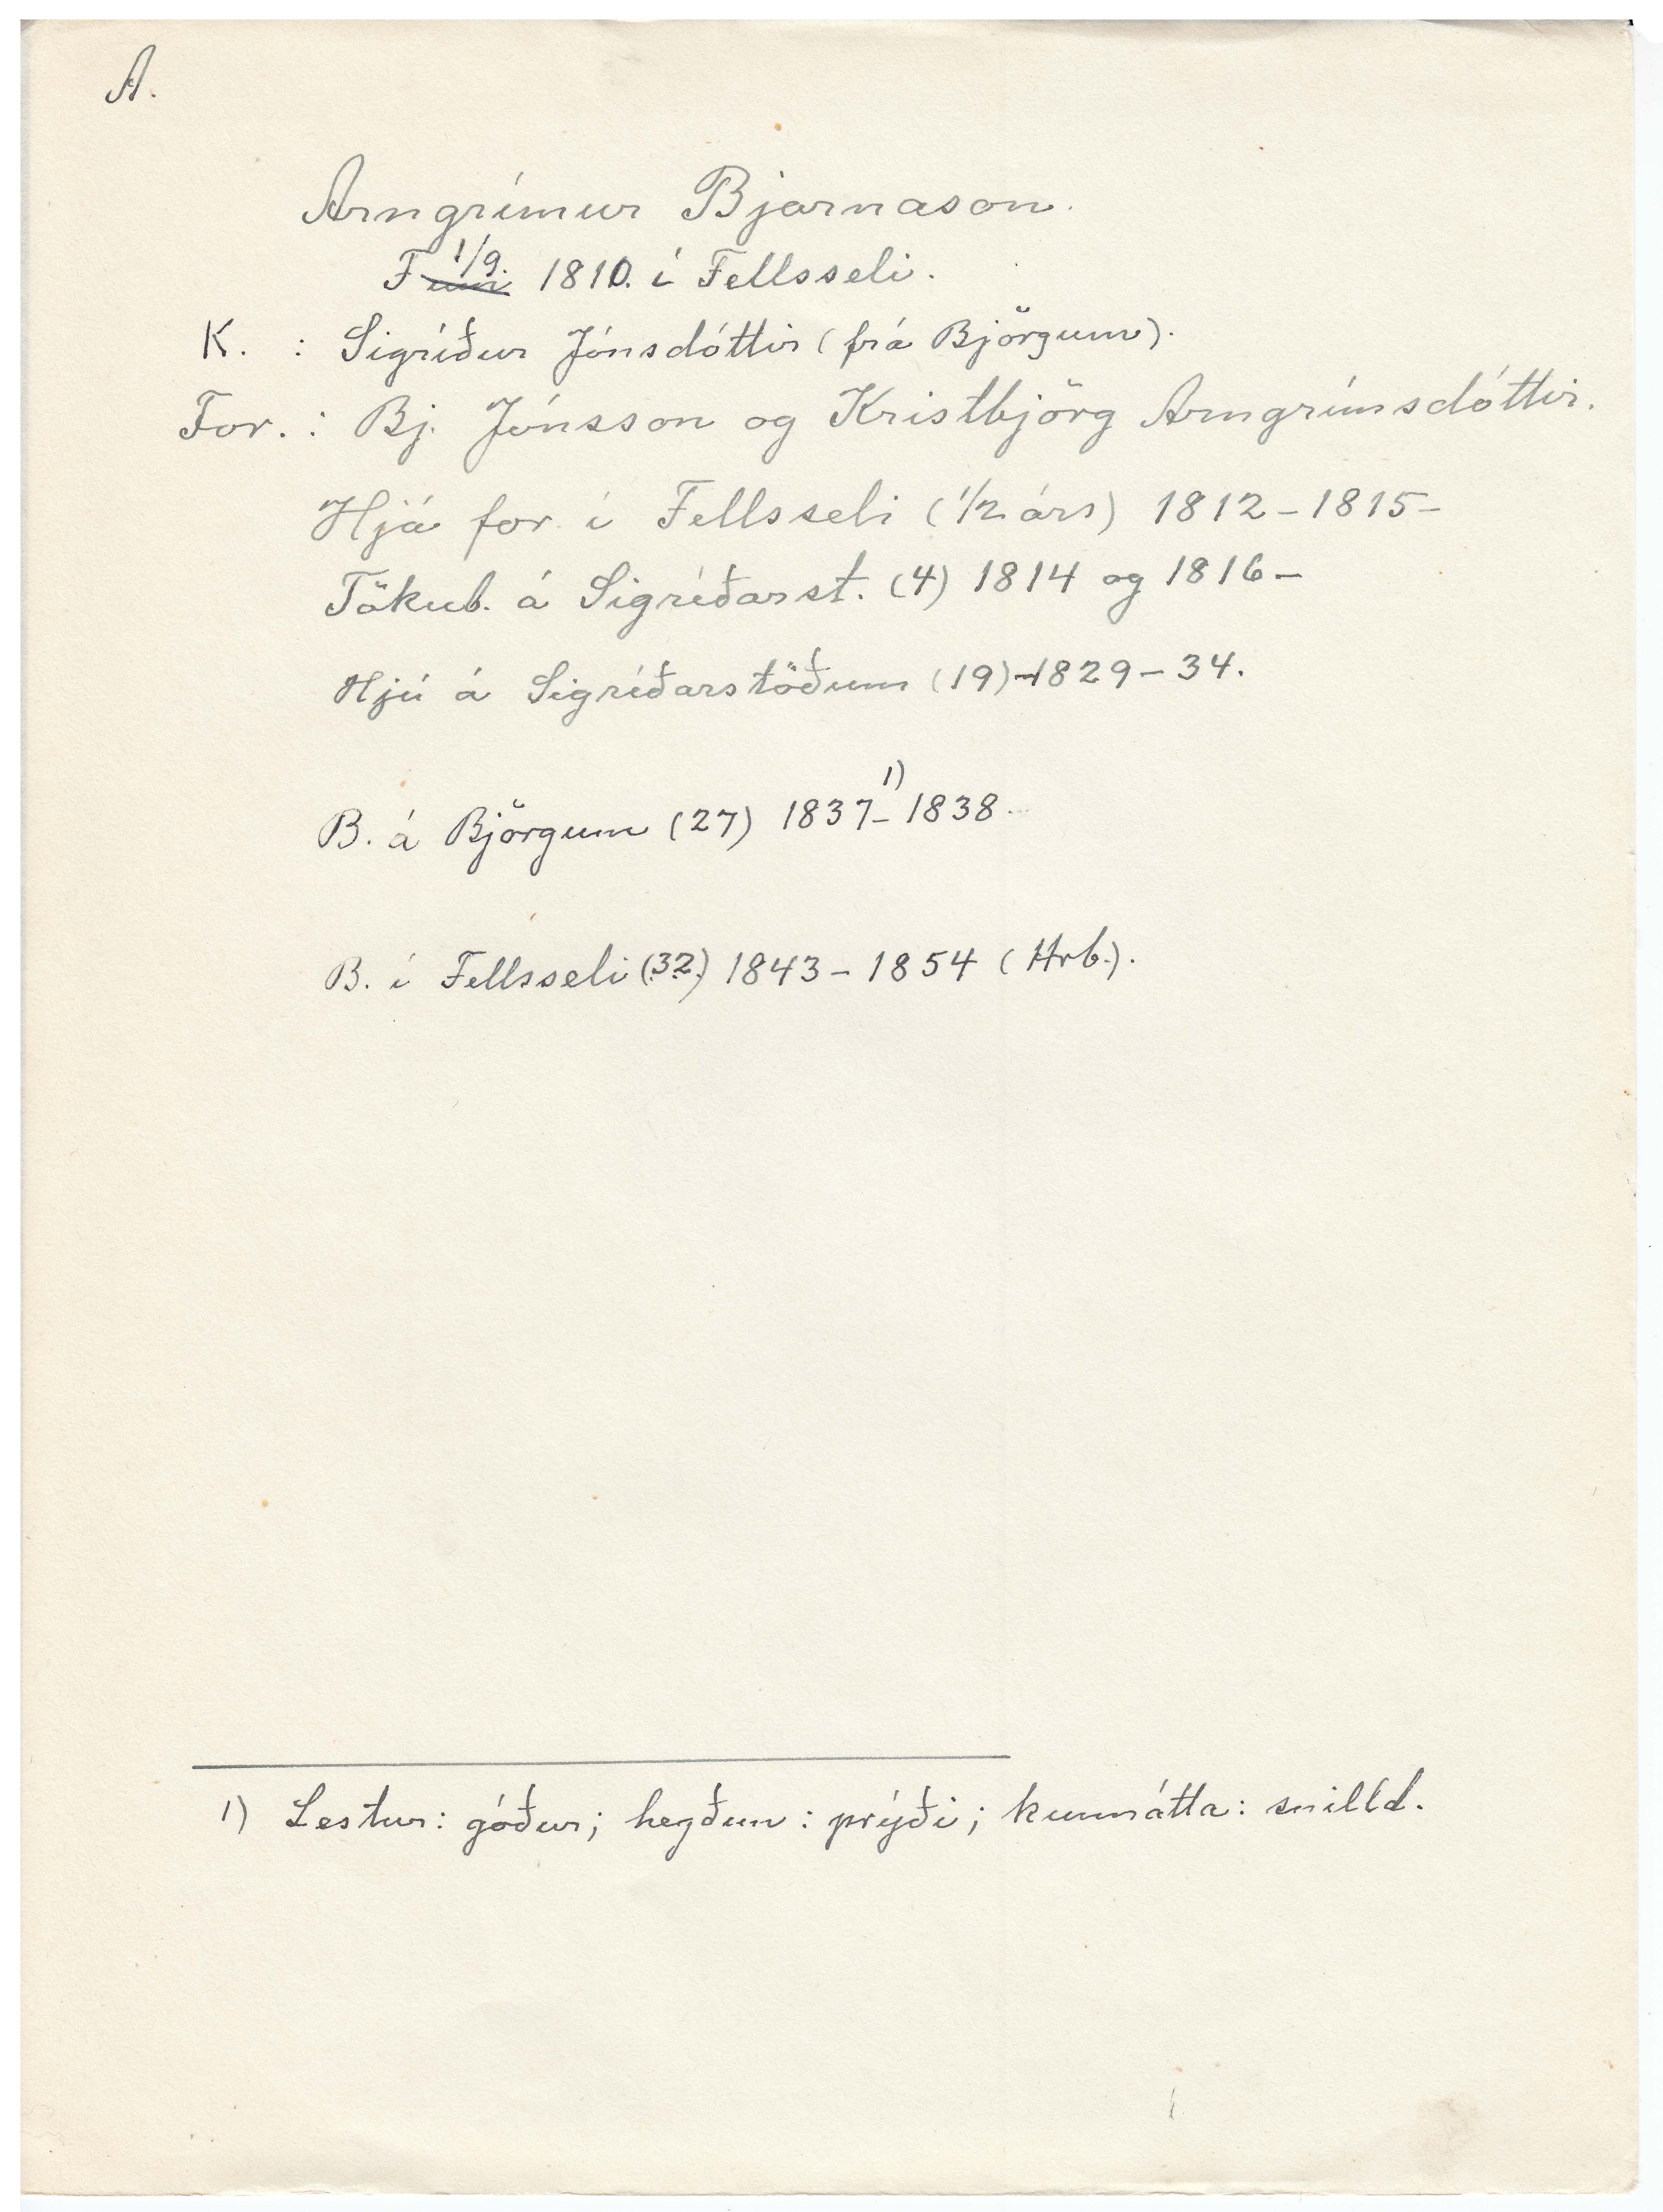 A.
Arngrímur Bjarnason.
F 1/9. 1810. í Fellsseli.
K. : Sigríður Jónsdóttir (frá Björgum).
For. : Bj. Jónsson og Kristbjörg Arngrímsdóttir.
Hjá for. í Fellsseli (1/2 árs) 1812-1815-
Tökub. á Sigríðarst. (4) 1814 og 1816-
Hjú á Sigríðarstöðum (19)-1829-34.
B. á Björgum (27) 1837-1) 1838
B. í Fellsseli (32) 1843-1854 (Hrb.).
1) Lestur: góður; hegðun: prýði; kunnátta: snilld.